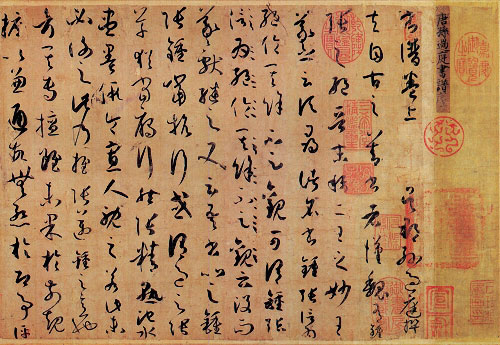 唐孫過庭書譜
書譜卷上 吳郡孫過庭撰
夫自古之善書者漢魏有鍾
張之絕晉末稱二王之妙王
羲之云頃尋諸名書鍾張信為
絕倫其餘不足觀可謂鍾張
信為絕倫其餘不足觀云沒而
羲獻繼之又云吾書比之鍾
張鍾當抗行或謂過之張
草猶當雁行然張精熟池水
盡墨假令寡人耽之若此未
必謝之此乃推張邁鍾之意也
考其專擅雖未果於前規
摭以兼通故無慚於即事評